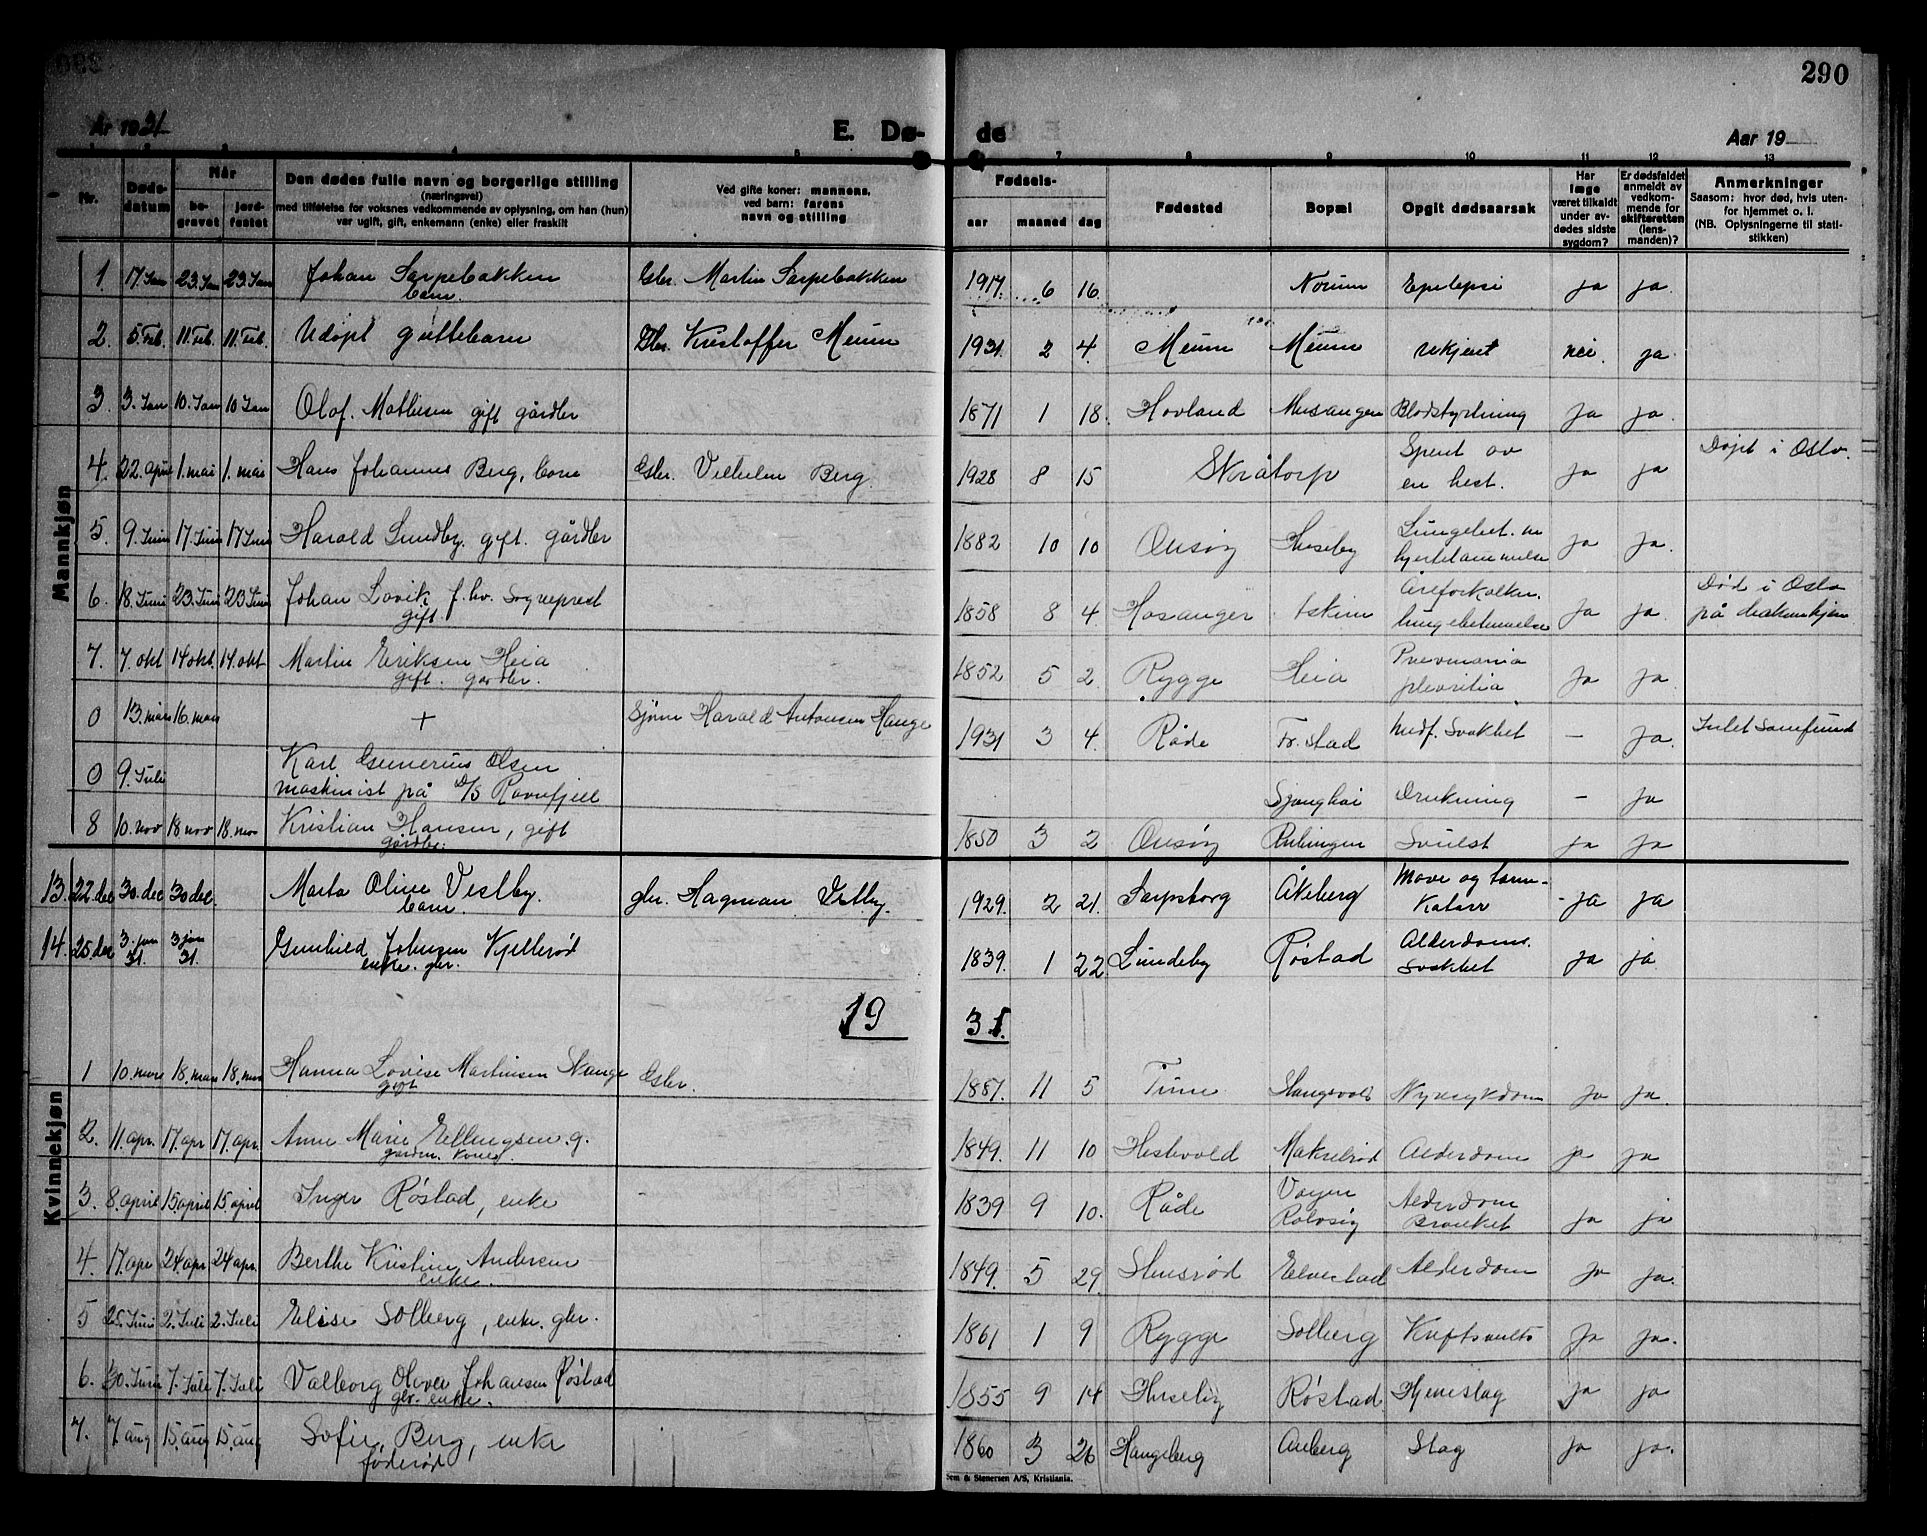 290
År 1931
E. Dø- de
Aar 19
Nr.
Døds-datum
Når
be-gravet
jord-festet
Den dødes fulle navn og borgerlige stilling
(næringsvei)
med tilføielse for voksnes vedkommende av oplysning, om han (hun)
var ugift, gift, enkemann (enke) eller fraskilt
Ved gifte koner: mannens,
ved barn: farens
navn og stilling
Fødsels-
aar maaned dag
Fødested
Bopæl
Opgit dødsaarsak
Har læge været tilkaldt under av-dødes sidste sygdom?
Er dødsfaldet anmeldt av vedkom-mende for skifteretten (lens-manden)?
Anmerkninger
Saasom: hvor død, hvis uten-
for hjemmet o. l.
(NB. Oplysningerne til stati-
stikken)
Mannkjøn
1 17. Jan 23. Jan 23. Jan Johan Sarpebakken Gbr. Martin Sarpebakken 1917. 6 16. Norum Epelepsi ja ja.
barn.
2. 5. Feb. 11. Feb. 11. Feb. Udøpt guttebarn Gbr. Kristoffer Meum 1931. 2 4. Meum Meum ukjent nei. ja.
3. 3. Jan 10. Jan 10 Jan Olaf. Mathisen gift gårdbr 1871 1 18. Hovland Musangen Blodstyrtning ja ja.
4. 22. april 1. mai 1. mai Hans Johannes Berg, barn Gbr. Vilhelm Berg. 1928 8 15 Skråtorp Spent av ja ja Døpt i Oslo.
en hest.
5. 9. Juni 17. Juni 17 Juni Harald Sundby. gift. gårdbr 1882 10 10 Onsøy Huseby Lungebet. ja ja.
hjertelammelse
6. 18. Juni 23. Juni 23 Juni Johan Lavik f.hv. Sogneprest 1858 8 4. Hosanger Askim Åreforkalkn. ja ja. Død i Oslo
gift. lungebetennelse på
7. 7. okt 14 okt. 14. okt Martin Eriksen Heia 1852 5 2. Rygge Heia Pnevmonia ja ja.
gift. gårdbr. plevritia
0 13. mars 16. mars + Sjøm Harald Antonsen Hauge 1931 3 4. Råde Fr. stad Medf. Svakhet – ja.
0 9. Juli Karl Gunerius Olsen
maskinist på D/S Ravnefjell Sjanghai Drukning – ja
8 10. nov 18 nov 18. nov Kristian Hansen, gift 1850 3 2 Onsøy Svulst ja ja
gårdbr.
13. 22. des 30. dec 30 dec. Marta Oline Vestby. gbr. Hagman Vestby. 1929. 2 21. Sarpsborg Åkeberg Mave og tarm- ja ja
barn. Katarr
14. 25 dec 3. jan 31. 3 jan 31. Gunhild Johnsen Kjellerød 1839. 1 22. Lundeby Røstad Alderdoms. ja ja
enke. gbr. svakhet
19 31.
Kvinnekjøn
1 10. mars 18. mars 18. mars Hanna Lovise Martinsen Stange Gbr. 1887. 11 5 Tune Nyresykdom ja ja.
gift
2. 11. apr. 17. apr 17. apr. Anne Marie Ellingsen. g. 1849. 11 10 Hestevold Alderdom ja ja
3. 8. april 15. april 15. april Inger Røstad, enke 1839 9 10. Råde Alderdom ja ja
Rolvsøy Bronkit
4. 17. apr 24. apr 24 apr. Berthe Kristine Andersen 1849. 5 29. Elvestad Alderdom ja ja.
enke.
5 25. Juni 2. Juli 2. Juli Elise Solberg, enke. gbr. 1861 1 9 Rygge Solberg Kreftsvulst ja ja.
6. 30. Juni 7. Juli 7. Juli Valborg Olivie Johansen Røstad 1855 9 14 Huseby Røstad. Hjerneslag ja ja
gbr. enke.
7. 7 aug 15. aug 15. aug Sofie Berg, enke 1860 3 26 Haugeberg Anberg Slag ja ja.
føderåd
Sem & Stenersen A/S, Kristiania.